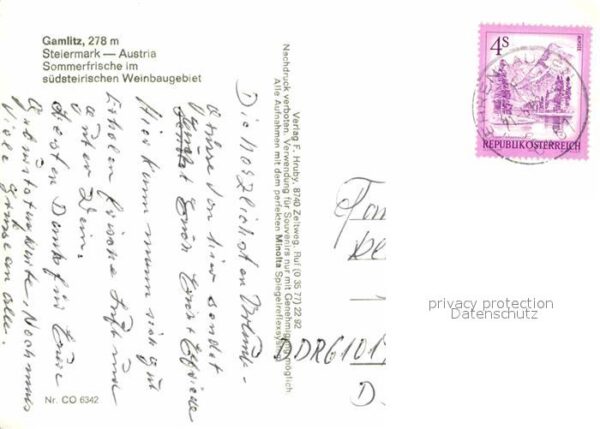 Gamlitz, 278 m
Steiermark — Austria
Sommerfrische im
südsteirischen Weinbaugebiet
Die Herzlichsten Urlaub-
Grüsse von hier sendet
Euch Ernst
Hier kann mann sich gut
Erholen frische Luft und
guter Wein.
Besten Dank für Eure
Nochmals
Viele Grüsse an alle.
Nr. CO 6342
Verlag F. Hruby, 8740 Zeltweg, Ruf (0 35 77) 22 92
Nachdruck verboten. Verwendung für Souvenirs nur mit Genehmigung möglich
Alle Aufnahmen mit dem perfekten Minolta Spiegelreflexsystem
4S
REPUBLIK ÖSTERREICH
Fam
DDR 6101
D
privacy protection
Datenschutz